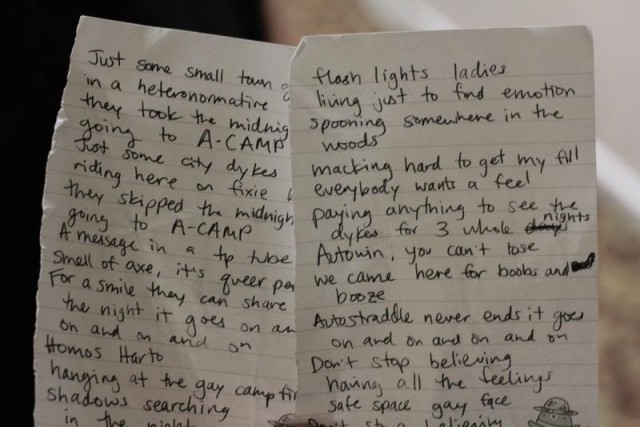 Just some small town
in a heteronormative
they took the
going to A-CAMP
Just some city dykes
riding here on fixie
they skipped the
going to A-CAMP
A message in a tp tube
Smell of axe, it's queer
For a smile they can share
the night it goes on
on and on and on
Homos Harto
hanging at the gay camp
shadows searching
in the night
flash lights ladies
living just to find emotion
spooning somewhere in the
woods
macking hard to get my fill
everybody wants a feel
paying anything to see the
dykes for 3 whole days nights
Autowin, you can't lose
we came here for boobs and
booze
Autostraddle never ends it goes
on and on and on and on
Don't stop believing
having all the feelings
safe space gay face
Don't stop